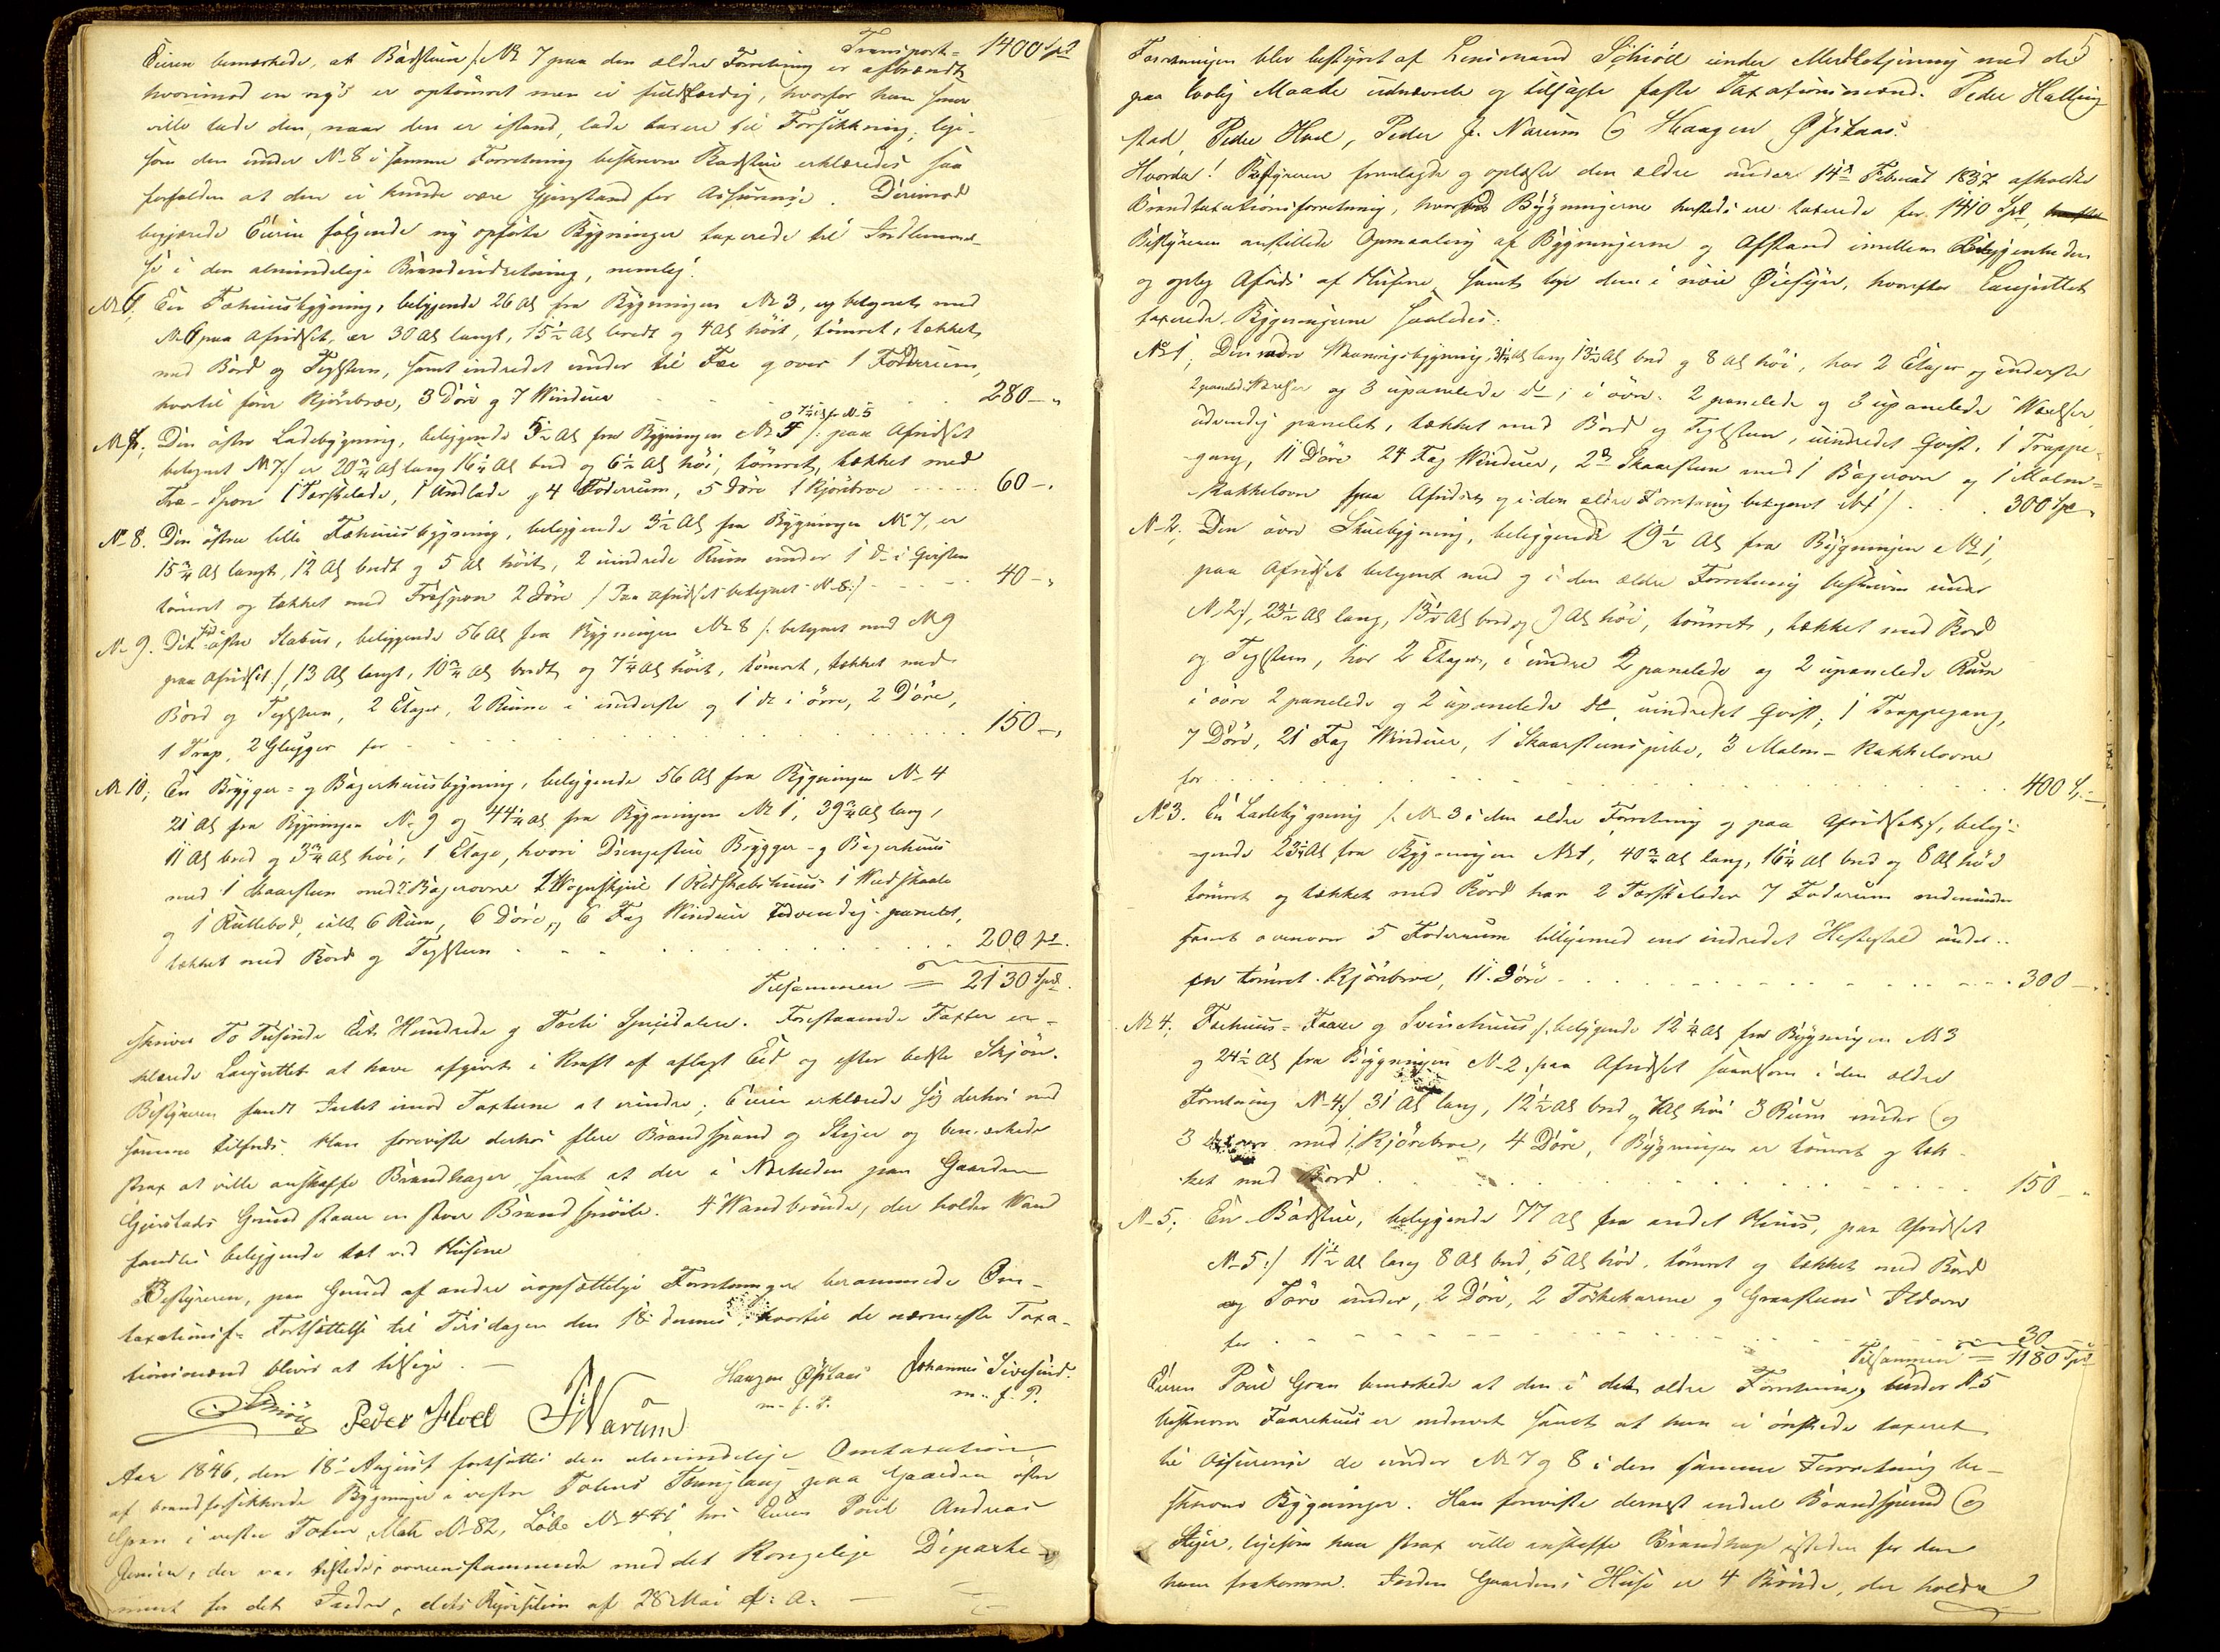 Transport = 1400 Spd
Eieren bemærkede, at Badstuen /: No 7 paa den ældre Forretning er afbrændt
hvorimod en nye er optømret men ei fuldfærdig, hvorfor han senere
ville lade den, naar den er istand, lade taxere til Forsikkring, lige-
som den under No 8 i samme Forretning beskrevne Badstue erklæredes saa
forfalden at den ei kunde være Gjenstand for Assurance. Derimod
begjærede Eieren følgende ny opførte Bygninger taxerede til Indlemmel-
se i den almindelige Brandindretning, nemlig:
No 6, En Fæhuusbygning, beliggende 26 Al fra Bygningen No 3, og betegnet med
No 6 paa Afridset, er 30 Al langt, 15½ Al bredt og 4 Al høit, tømret, tækket
med Bord og Teglsteen, samt indredet under til Fæe og over 1 Foderrum,
hvortil fører Kjørebroe, 3 Døre og 7 Vinduer 280 – "
og 7¼ Al fr No 5
No 7. Den østre Ladebygning, beliggende 5½ Al fra Bygningen No 4 /: paa Afridset
betegnet No 7 :/ er 20¾ Al lang 16¼ Al bred og 6½ Al høi, tømret, tækket med
Træ-Spon 1 Tærskelade, 1 Andlade og 4 Foderrum, 5 Døre 1 Kjørebroe 60 – "
No 8. Den østre lille Fæhuusbygning, beliggende 3½ Al fra Bygningen No 7, er
15¾ Al langt, 12 Al bredt og 5 Al høit, 2 uindrede Rum under 1 do i Qvisten
tømret og tækket med Træspon 2 Døre /: Paa Afridset betegnet No 8 :/ 40 – "
No 9. Det østre Stabur, beliggende 56 Al fra Bygningen No 8 /: betegnet med No 9
paa Afridset :/, 13 Al langt, 10¾ Al bredt og 7¼ Al høit, tømret, tækket med
Bord og Teglsteen, 2 Etager, 2 Rumme i underste og 1 do i øvre, 2 Døre,
1 Trap, 2 Glugger for 150 – "
No 10, En Brygger- og Bagerhuusbygning, beliggende 56 Al fra Bygningen No 4
21 Al fra Bygningen No 9 og 44¼ Al fra Bygningen No 1, 39¾ Al lang,
11 Al bred og 3¾ Al høi, 1 Etage, hvori Drengestue Brygger- og Bagerhuus
med 1 Skaarsteen med 2 Bagerovne 1 Vognskjul 1 Redskabshuus 1 Vedskaale
og 1 Rullebod, ialt 6 Rum, 6 Døre, 6 Fag Vinduer udvendig panelet,
tækket med Bord og Teglsteen 200 Spd.
Tilsammen = 2130 Spd.
skriver To Tusinde Eet Hundrede og Tredive Speciedalere. Forestaaende Taxter er-
klærede Laugrettet at have afgivet i Kraft af aflagt Eed og efter bedste Skjøn.
Bestyreren fandt Intet imod Taxterne at erindre; Eieren erklærede sig derhos med
samme tilfreds. Han foreviste derhos flere Brandspand og Stiger og bemærkede
strax at ville anskaffe Brandhager, samt at der i Nærheden paa Gaarden
Gjerstads Grund staaer en stor Brandsprøite. 4 Vandbrønde, der holder Vand
fandtes beliggende tæt ved Husene
Bestyreren, paa Grund af andre uopsættelige Forretninger berammede Om-
taxationsf. Fortsættelse til Tirsdagen den 18 dennes, hvortil de nærmeste Taxa-
tionsmænd bliver at tilsige. –
Schiøtz Peder Hoel PNarum Haagen Østaas Johannes Sivesind.
m. f. P. m. f. P.
Aar 1846, den 18de August fortsattes den almindelige Omtaxation
af brandforsikkrede Bygninger i vestre Totens Thinglaug paa Gaarden østre
Gran i vestre Toten, Matr No 82, Løbe No 441 hos Eieren Poul Andreas
Jensen, der var tilstede, overensstemmende med det Kongelige Departe-
ment for det Indre, dets Reqvisition af 28 Mai d: A:
5
Forretningen blev bestyret af Lensmand Schiøtz under Medbetjening med de
paa lovlig Maade udnævnte og tilsagte faste Taxationsmænd. Peder Halling
stad, Peder Hoel, Peder J. Narum og Haagen Østaas.
Hvorda! Bestyreren fremlagde og oplæste den ældre under 14de Februar 1837 afholdte
Brandtaxationsforretning, hvorved Bygningerne hersteds ere taxerede for 1410 Spd,
Bestyreren anstillede Opmaaling af Bygningerne og Afstand imellem Beliggenheden
og optog Afrids af Husene, samt toge dem i nøie Øiesyn, hvorefter Laugrettet
taxerede Bygningerne saaledes:
No 1, Den nedre Vaaningsbygning, 31¼ Al lang 13½ Al bred og 8 Al høi, har 2 Etager og underste
2 panelede Værelser og 3 upanelede do, i øvre: 2 panelede og 3 upanelede Værelser,
udvendig panelet, tækket med Bord og Teglsteen, uindredet Qvist, 1 Trappe-
gang, 11 Døre 24 Fag Vinduer, 2de Skaarsteen med 1 Bagerovn og 1 Malm-
kakkelovn /: paa Afridset og i den ældre Forretning betegnet No 1 :/ 300 Spd "
No 2, Den øvre Stuebygning, beliggende 19½ Al fra Bygningen No 1,
paa Afridset betegnet med og i den ældre Forretning beskreven under
No 2 :/, 23½ Al lang, 13½ Al bred og 9 Al høi, tømret, tækket med Bord
og Teglsteen, har 2 Etager, i undre 2 panelede og 2 upanelede Rum
i øvre 2 panelede og 2 upanelede do, uindredet Qvist, 1 Trappegang,
7 Døre, 21 Fag Vinduer, 1 Skaarsteenspibe, 3 Malm-Kakkelovne
for 400 S. –
No 3. En Ladebygning /: No 3 i den ældre Forretning og paa Afridset :/, belig-
gende 23¼ Al fra Bygningen No 1, 40¾ Al lang, 16¼ Al bred og 8 Al høi
tømret og tækket med Bord har 2 Tærskelader 7 Foderrum nedenunder
samt ovenover 5 Foderrum tilligemed een indredet Hestestald under
en tømret Kjørebroe, 11 Døre 300 –
No 4, Fæhuus- Faare og Sviinehuus /: beliggende 12¼ Al fra Bygningen No 3
og 24½ Al fra Bygningen No 2, paa Afridset saavelsom i den ældre
Forretning No 4 :/ 31 Al lang, 12½ Al bred og 7 Al høi 3 Rum under og
3 do over med 1 Kjørebroe, 4 Døre, Bygningen er tømret og tæk-
ket med Bord 150 – "
No 5, En Badstue, beliggende 77 Al fra andet Huus, paa Afridset
No 5 :/ 11½ Al lang 8 Al bred, 5 Al høi, tømret og tækket med Bord
og Torv under, 2 Døre, 2 Tørkekarme og Graasteens Ildovn
for 30
Tilsammen = 1180 Spd
Eieren Poul Gran bemærkede at den i den ældre Forretning under No 5
beskrevne Faarehuus er nedrevet samt at han ei ønskede taxeret
til Assurance de under No 7 og 8 i den samme Forretning be-
skrevne Bygninger. Han foreviste dernæst endeel Brandspand og
Stiger, ligesom han strax ville anskaffe Brandhage istedet for den
ham frakomne. Inden Gaardens Huse er 4 Brønde, der holder